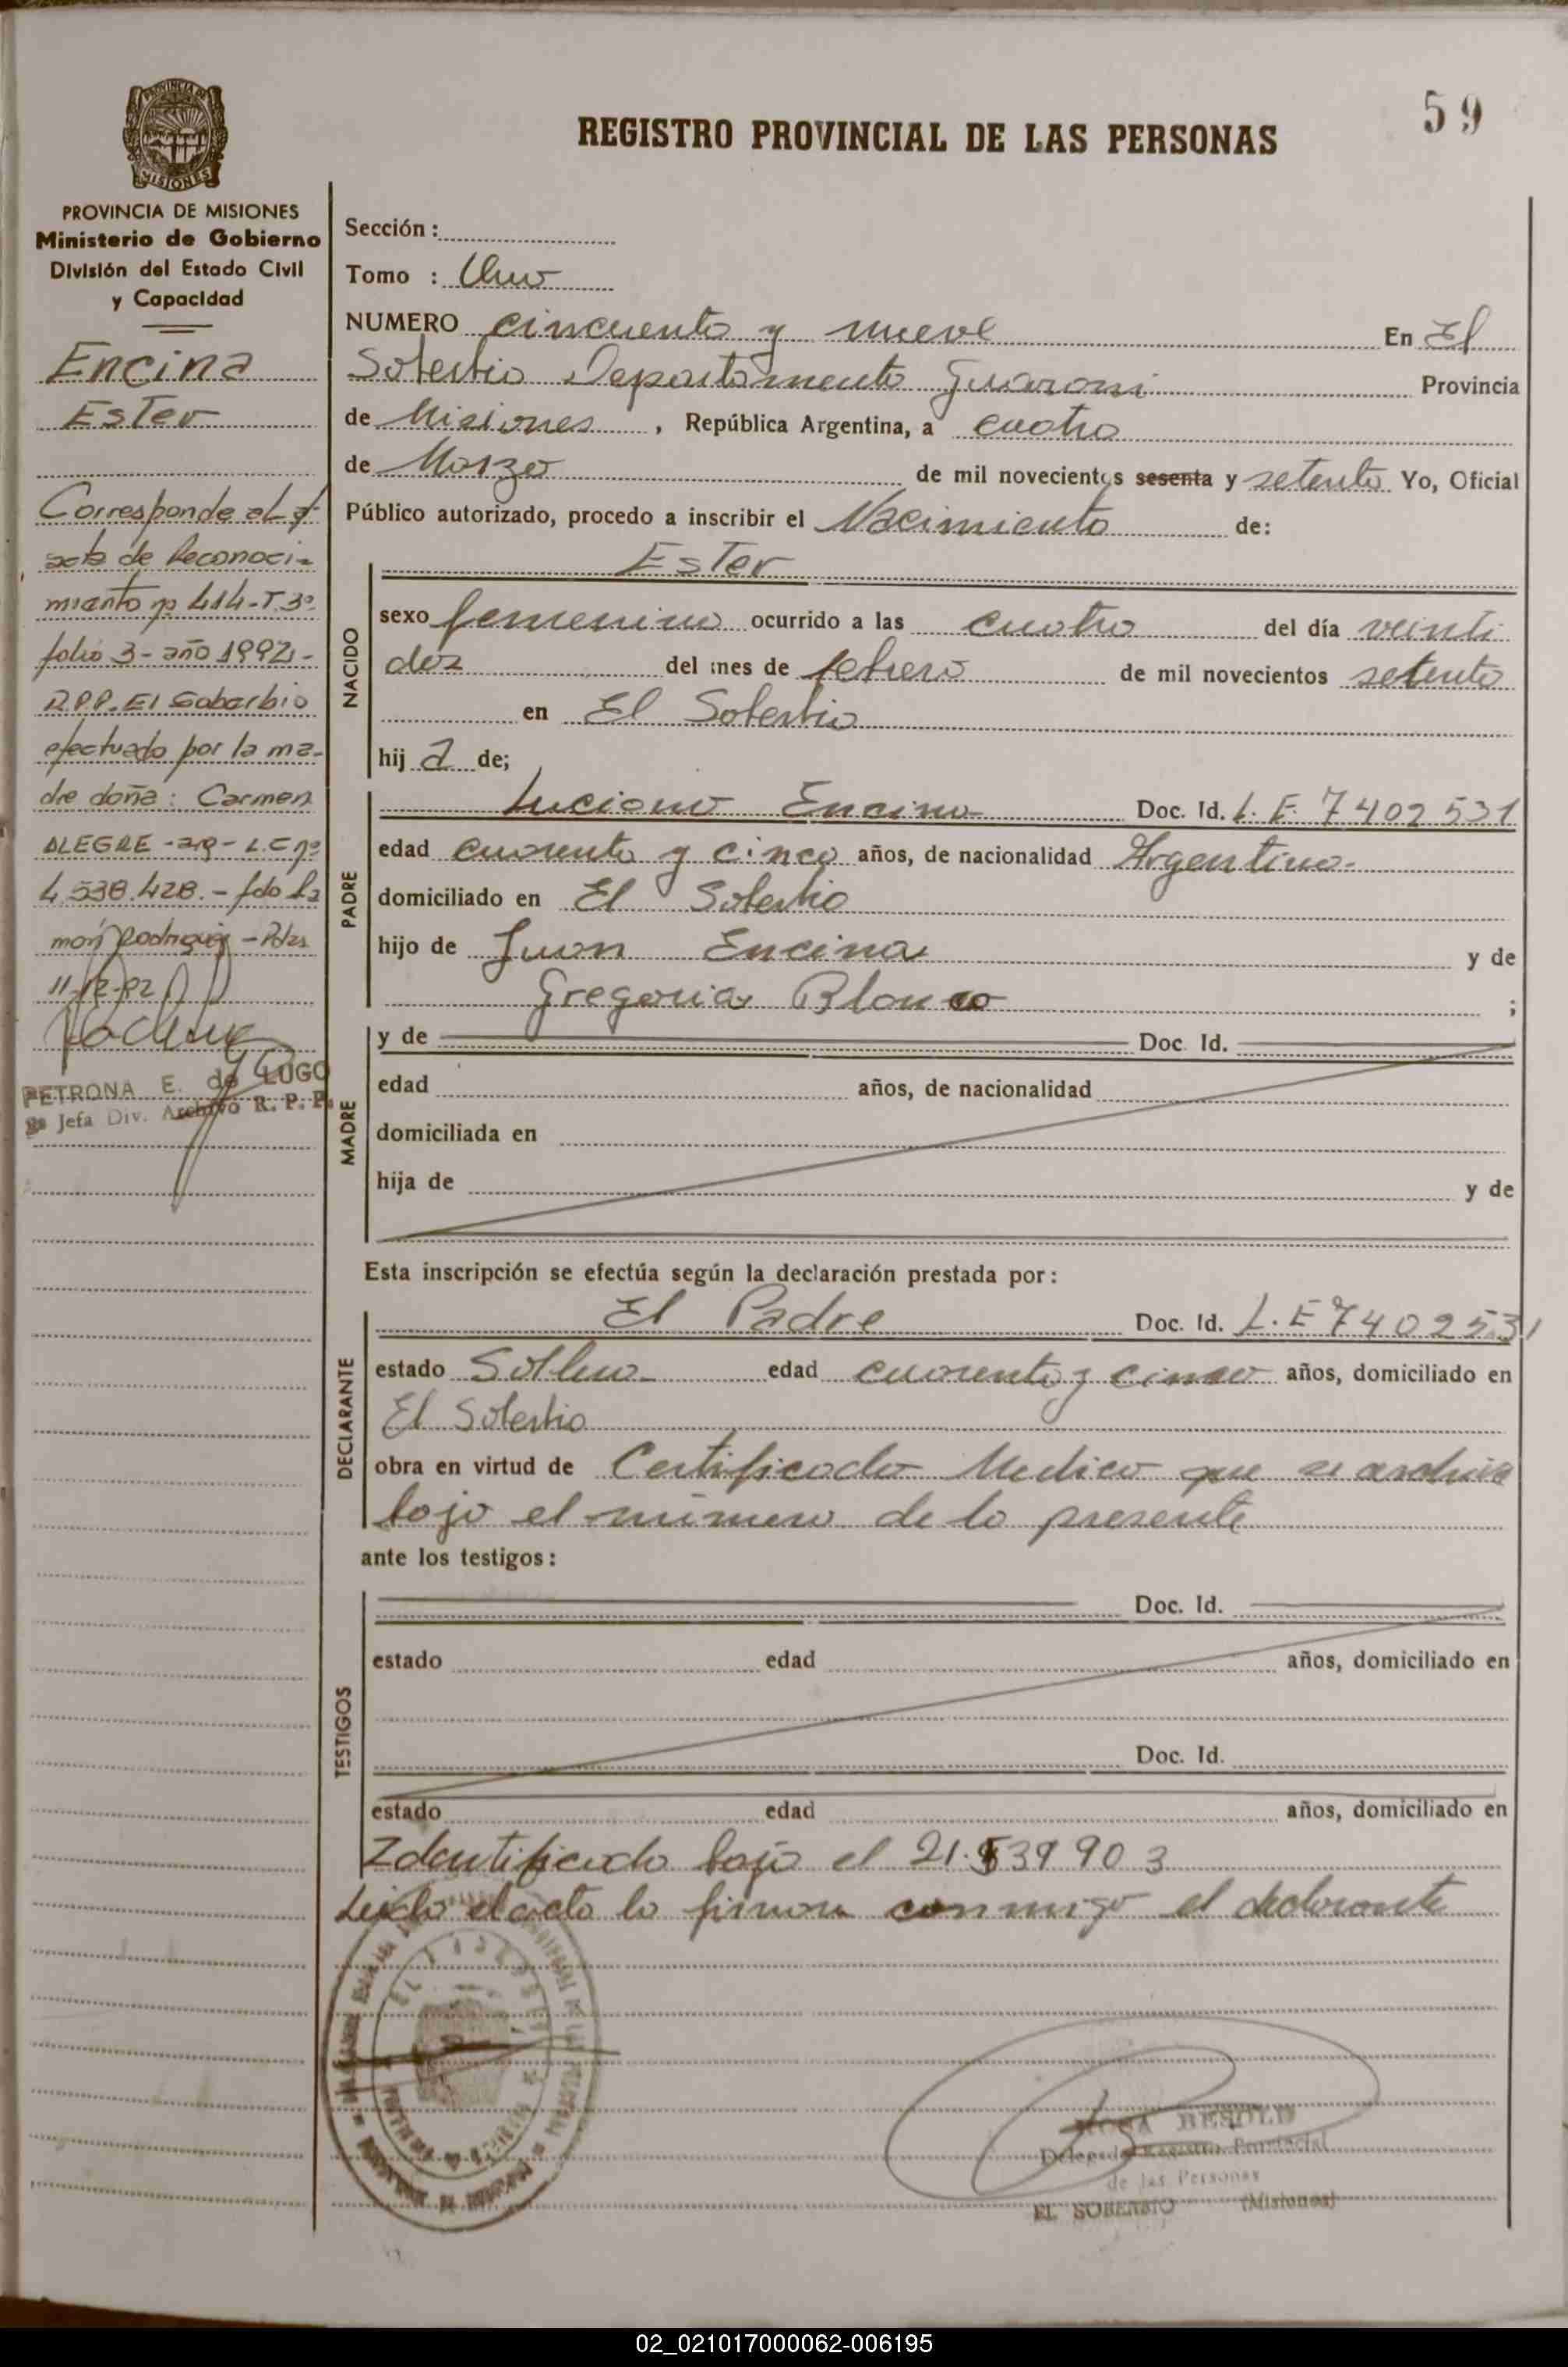 59
REGISTRO PROVINCIAL DE LAS PERSONAS
PROVINCIA DE
MISIONES
PROVINCIA DE MISIONES
Ministerio de Gobierno
División del Estado Civil
y Capacidad
Encina
Ester
Corresponde al
acta de Reconoci-
miento nº 414-T.3º
folio 3- año 1992-
R.P.P. El Soberbio
efectuado por la ma-
dre doña: Carmen
ALEGRE - arg - L.C nº
4.538.428.- fdo Ra
món Rodriguez - Pdas
11-12-92
PETRONA E. de LUGO
Jefa Div. Archivo R. P. P.
Sección :
Tomo : Uno
NUMERO cincuenta y nueve En El
Soberbio Departamento Guarani Provincia
de Misiones, República Argentina, a cuatro
de Marzo de mil novecientos sesenta y setenta Yo, Oficial
Público autorizado, procedo a inscribir el Nacimiento de:
NACIDO
Ester
sexo femenino ocurrido a las cuatro del día veinti
dos del mes de febrero de mil novecientos setenta
en El Soberbio
hij a de;
PADRE
Luciano Encina Doc. Id. L.E. 7402531
edad cuarenta y cinco años, de nacionalidad Argentina-
domiciliado en El Soberbio
hijo de Juan Encina y de
Gregoria Blanco ;
MADRE
y de Doc. Id.
edad años, de nacionalidad
domiciliada en
hija de y de
Esta inscripción se efectúa según la declaración prestada por:
DECLARANTE
El Padre Doc. Id. L.E 7402531
estado Soltero edad cuarenta y cinco años, domiciliado en
El Soberbio
obra en virtud de Certificado Medico que se archiva
bajo el número de la presente
ante los testigos:
TESTIGOS
Doc. Id.
estado edad años, domiciliado en
Doc. Id.
estado edad años, domiciliado en
Identificado bajo el 21.539903
Leida el acta la firman conmigo el declarante
ROSA BESOLD
Delegada Registro Provincial
de las Personas
EL SOBERBIO (Misiones)
02_021017000062-006195